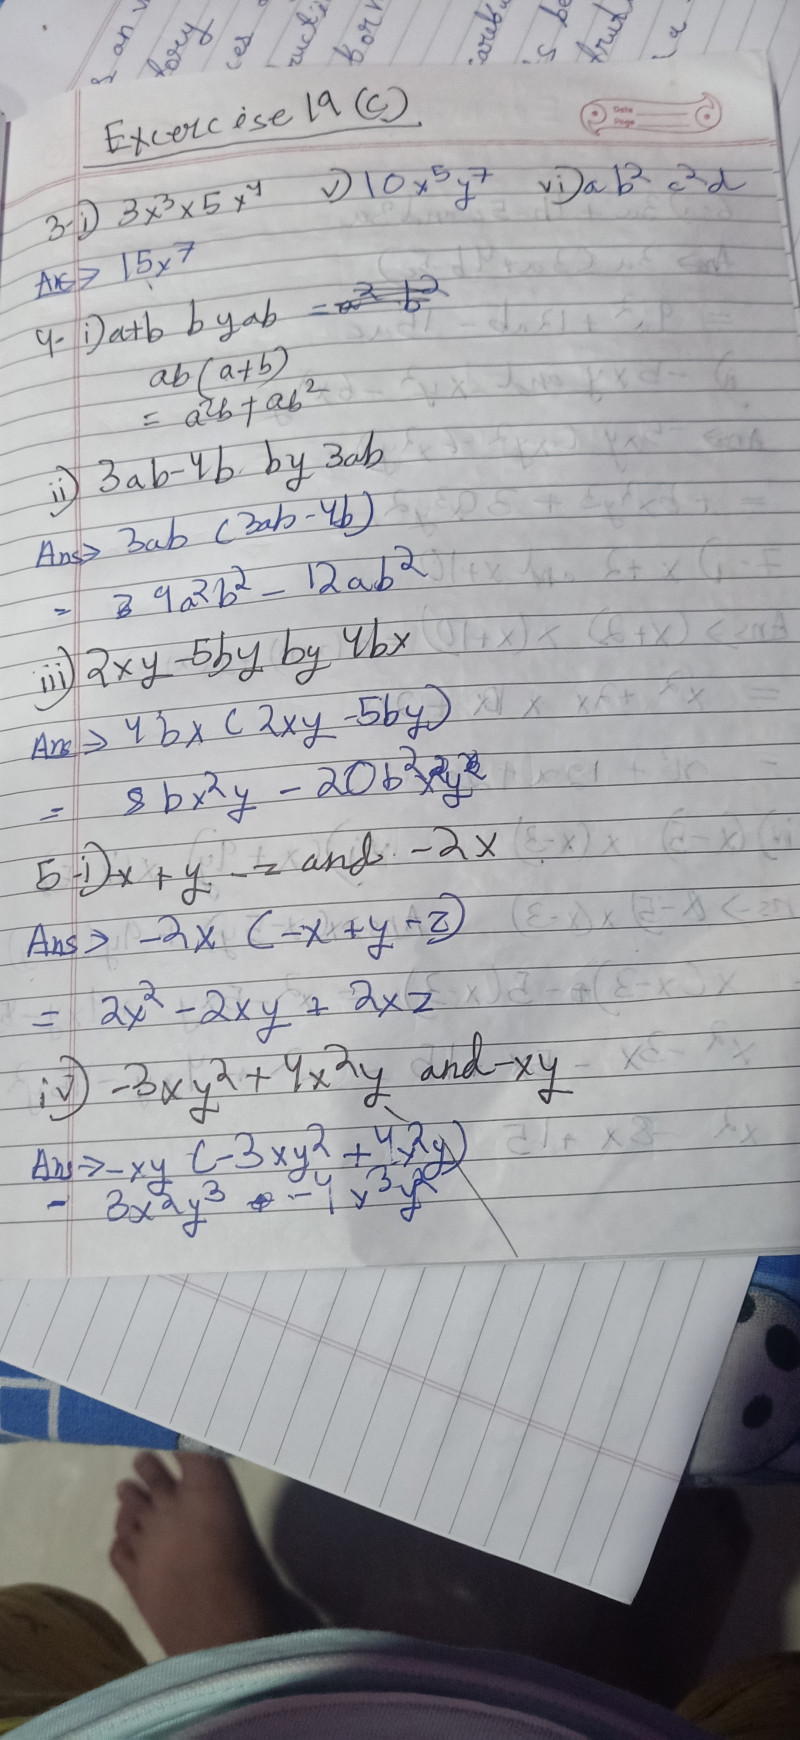 Excercise 19 (c)
Date
Page
3-i) 3x³ x 5x⁴ v) 10x⁵y⁷ vi) ab² c²d
Ans> 15x⁷
4- i) a+b by ab =
ab (a+b)
= a²b + ab²
ii) 3ab-4b by 3ab
Ans> 3ab (3ab-4b)
= 9a²b² - 12ab²
iii) 2xy-5by by 4bx
Ans> 4bx (2xy-5by)
= 8bx²y - 20b²xy²
5-i) -x + y - z and -2x
Ans> -2x (-x+y-z)
= 2x² - 2xy + 2xz
iv) -3xy² + 4x²y and -xy
Ans> -xy (-3xy² + 4x²y)
- 3x²y³ - 4x³y²